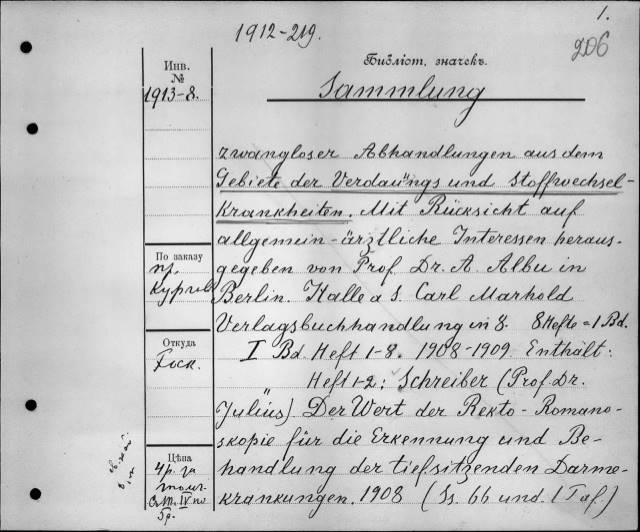 1.
1912-219.
206
Инв.
№
1913-8.
Библіот. значекъ.
Sammlung
zwangloser Abhandlungen aus dem
Gebiete der Verdauungs und Stoffwechsel-
Krankheiten. Mit Rücksicht auf
allgemein-ärztliche Interessen heraus-
По заказу
пр.
gegeben von Prof. Dr. A. Albu in
Berlin. Halle a S. Carl Marhold
Verlagsbuchhandlung in 8. 8 Hefte = 1 Bd.
Откуда
Госк.
I Bd. Heft 1-8. 1908-1909. Enthält:
Heft 1-2: Schreiber (Prof. Dr.
Julius). Der Wert der Rekto-Romano-
skopie für die Erkennung und Be-
Цѣна
4 р. за
томъ
IV по
5 р.
handlung der tiefsitzenden Darme-
krankungen. 1908 (Ss. 66 und 1 Taf.)